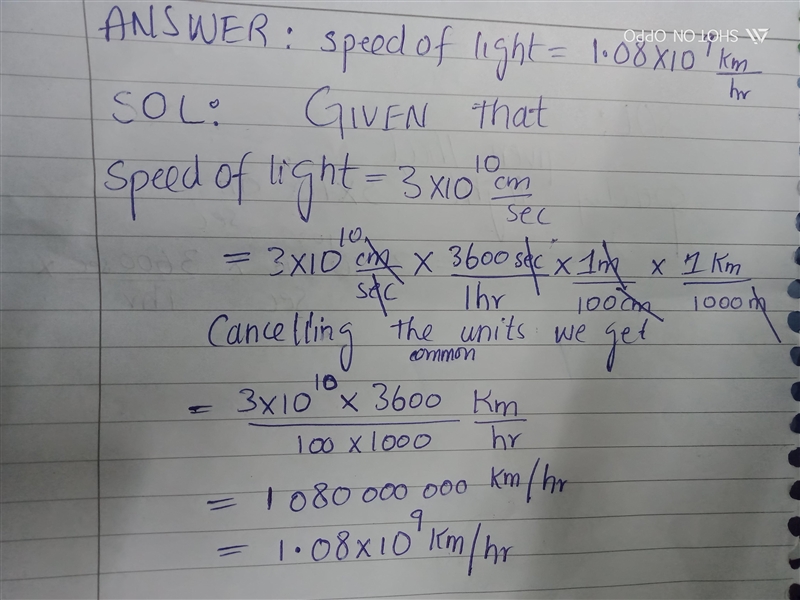 SHOT ON OPPO
ANSWER: speed of light = 1.08×10⁹ Km/hr
SOL: GIVEN that
Speed of light = 3×10¹⁰ cm/sec
= 3×10¹⁰ cm/sec × 3600 sec/1hr × 1m/100cm × 1 Km/1000m
Cancelling the common units we get
= 3×10¹⁰ × 3600/100 × 1000 Km/hr
= 1080 000 000 Km/hr
= 1.08×10⁹ Km/hr